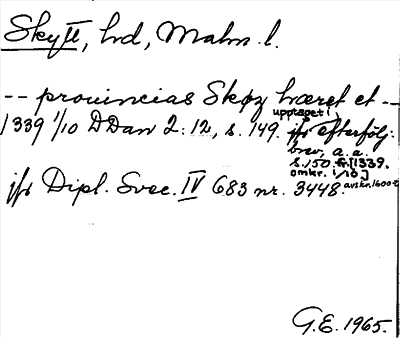 Skytt, hd, Malm. l.
-- prouincias Skøz hæret et --
1339 1/10 DDan 2:12, s. 149. jfr efterfölj.
upptaget i
brev, a.a.
s. 150 fr. [1339.
omkr. 1/10]
jfr Dipl. Svec. IV 683 nr. 3448. avskr. 1600-t
G.E. 1965.